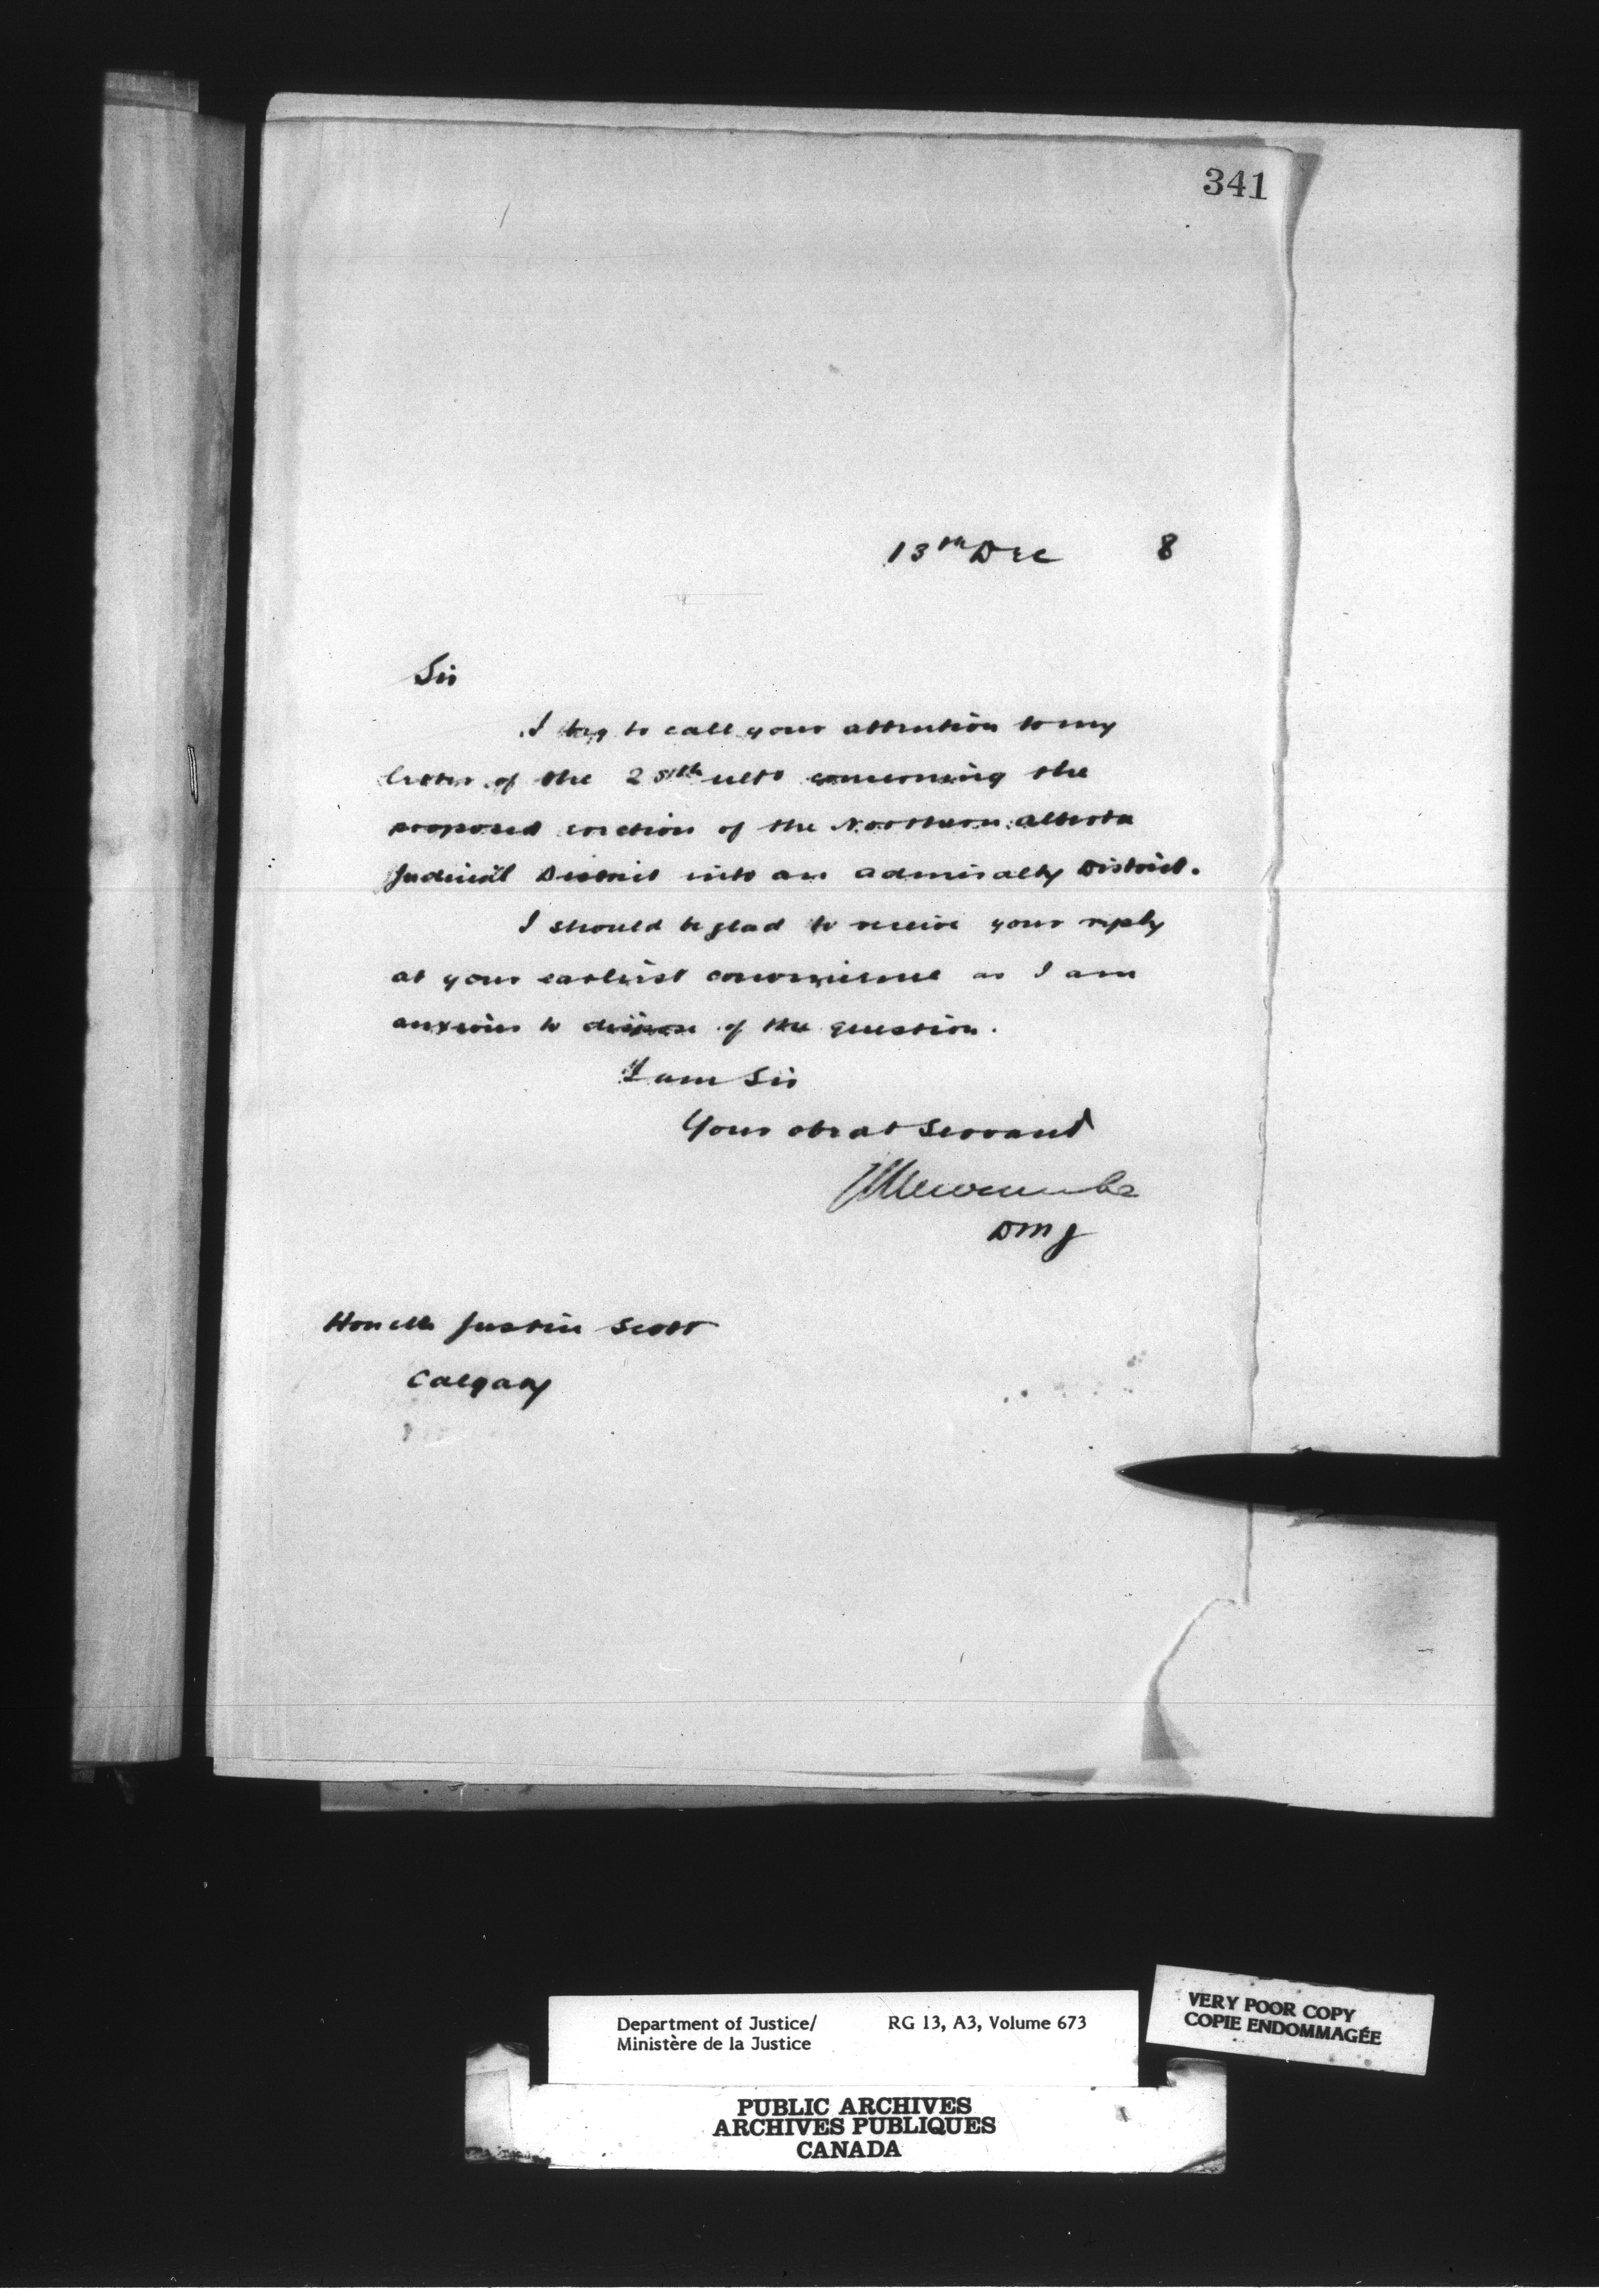 341
13th Dec 8
Sir
I beg to call your attention to my
letter of the 25th ulto concerning the
proposed erection of the Northern Alberta
Judicial District into an Admiralty District.
I should be glad to receive your reply
at your earliest convenience as I am
anxious to dispose of the question.
I am Sir
Your obedt Servant
Newcombe
DMJ
Hon Mr Justice Scott
Calgary
Department of Justice/ RG 13, A3, Volume 673
Ministère de la Justice
VERY POOR COPY
COPIE ENDOMMAGÉE
PUBLIC ARCHIVES
ARCHIVES PUBLIQUES
CANADA